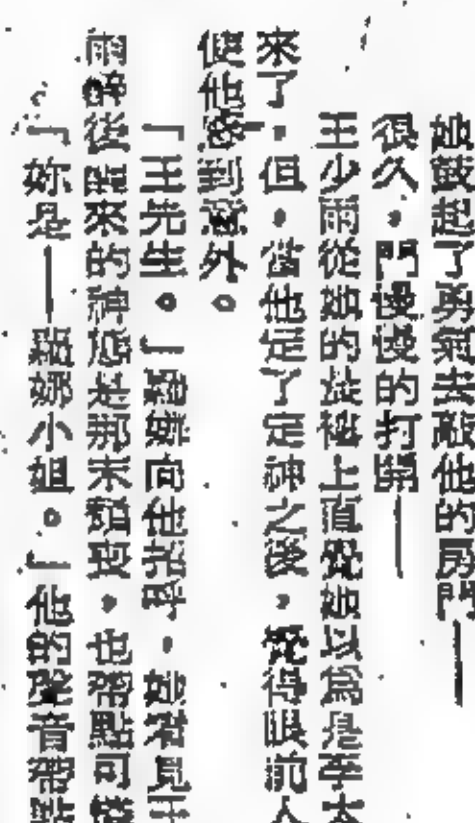 她鼓起了勇氣去敲他的房門——
很久,門慢慢的打開——
王少雨從她的裝禭上直覺她以爲是李太
來了,但,當他定了定神之後,覺得眼前人
使他感到意外。
「王先生。」黛娜向他招呼,她看見王
雨醉後醒來的神態是那末頹喪,也帶點可憐
「妳是——黛娜小姐。」他的聲音帶點